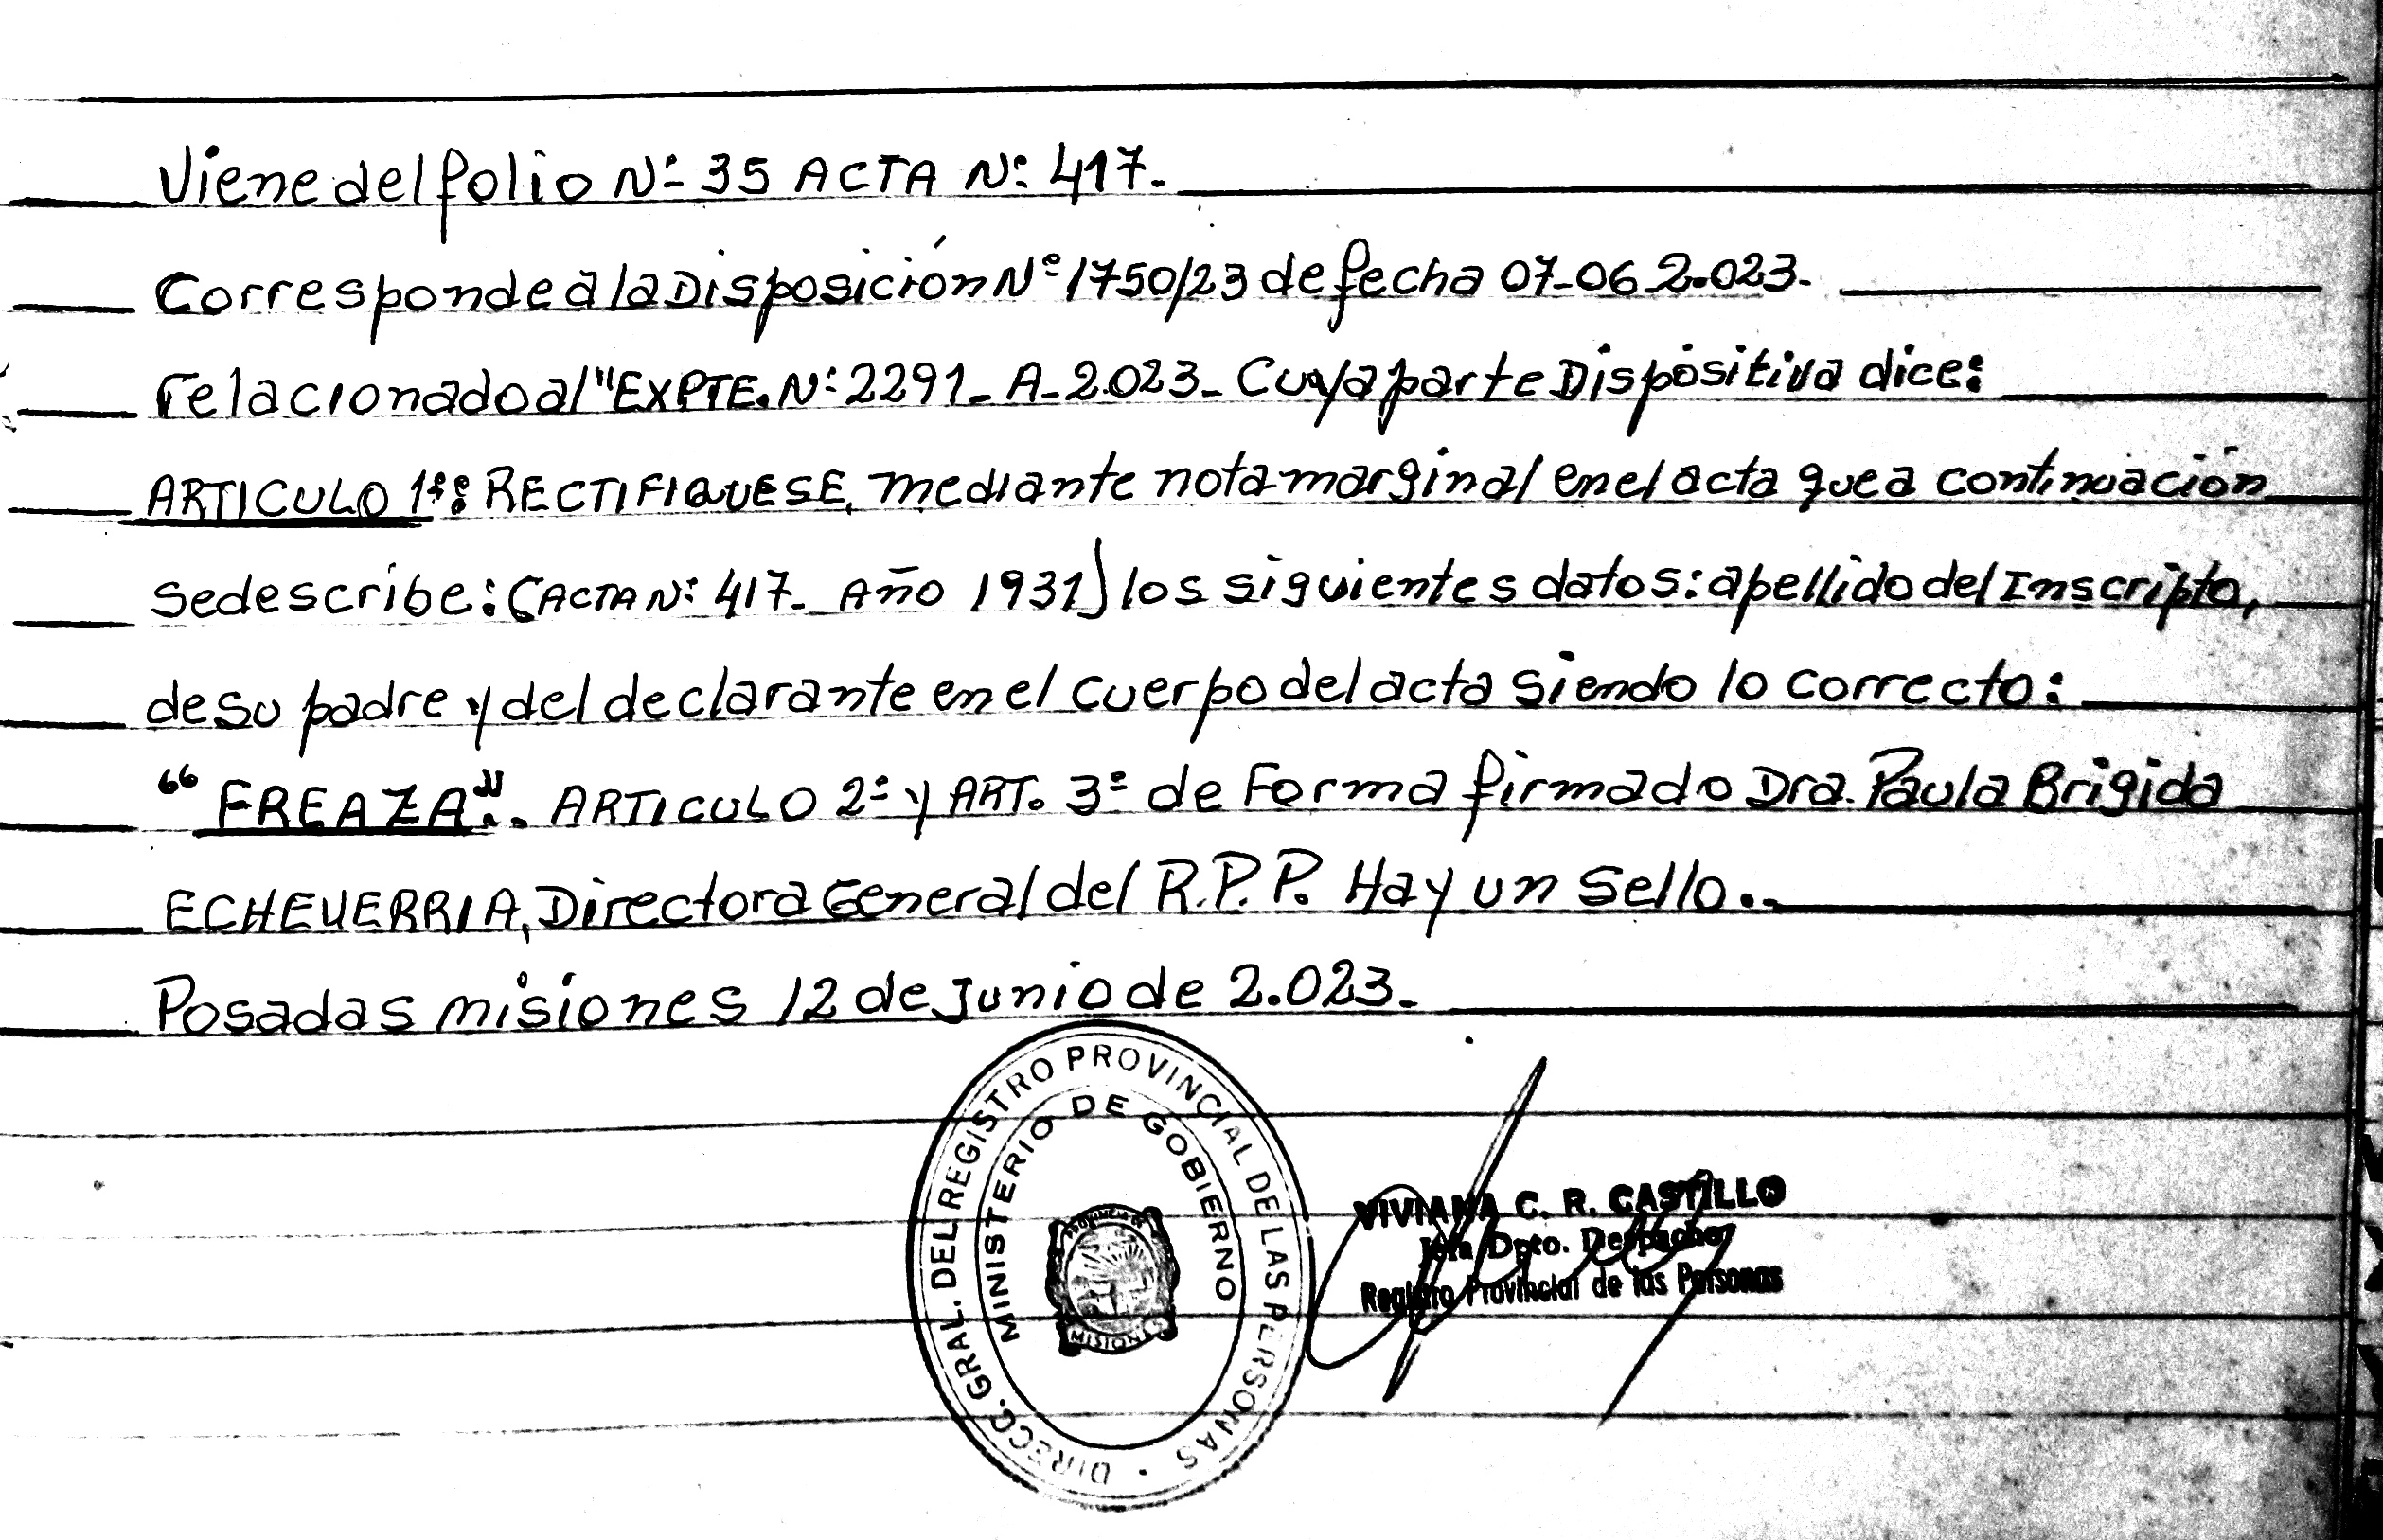 Viene del folio Nº 35 ACTA Nº 417.
Corresponde a la Disposición Nº 1750/23 de fecha 07-06 2.023.
relacionado al "EXPTE. Nº 2291- A- 2.023- Cuya parte Dispositiva dice:
ARTICULO 1º: RECTIFIQUESE, mediante nota marginal en el acta que a continuación
se describe: (ACTA Nº 417. Año 1931) los siguientes datos: apellido del Inscripto,
de su padre y del declarante en el cuerpo del acta siendo lo correcto:
"FREAZA". ARTICULO 2º y ART. 3º de Forma firmado Dra. Paula Brigida
ECHEVERRIA, Directora General del R.P.P. Hay un Sello..
Posadas misiones 12 de Junio de 2.023.
DIRECC. GRAL. DEL REGISTRO PROVINCIAL DE LAS PERSONAS
MINISTERIO DE GOBIERNO
PROVINCIA DE
MISIONES
VIVIANA C. R. CASTILLO
Jefa Dpto. Despacho
Registro Provincial de las Personas